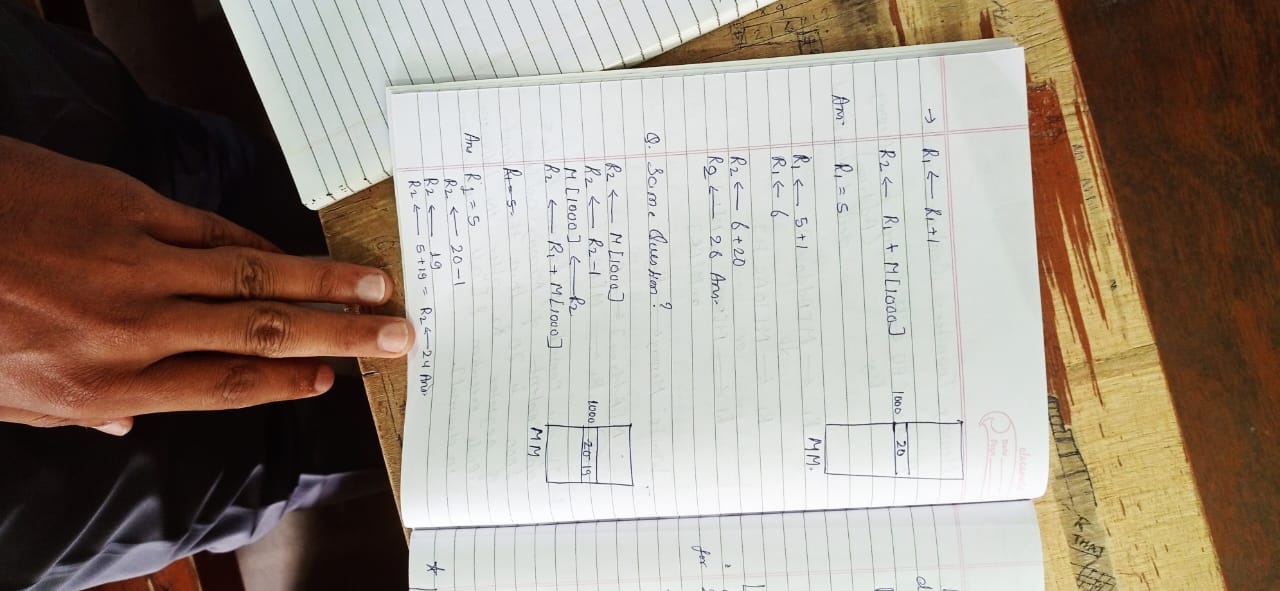 → R1 ← R1+1
R2 ← R1 + M[1000]
1000 20
MM.
Ans: R1 = 5
R1 ← 5+1
R1 ← 6
R2 ← 6+20
R2 ← 26 Ans.
Q. Same Question?
R2 ← M[1000]
R2 ← R2-1
M[1000] ← R2
R2 ← R1 + M[1000]
1000 20 19
MM
R1=5
Ans R1 = 5
R2 ← 20-1
R2 ← 19
R2 ← 5+19 = R2 ← 24 Ans.
for
*
THAT